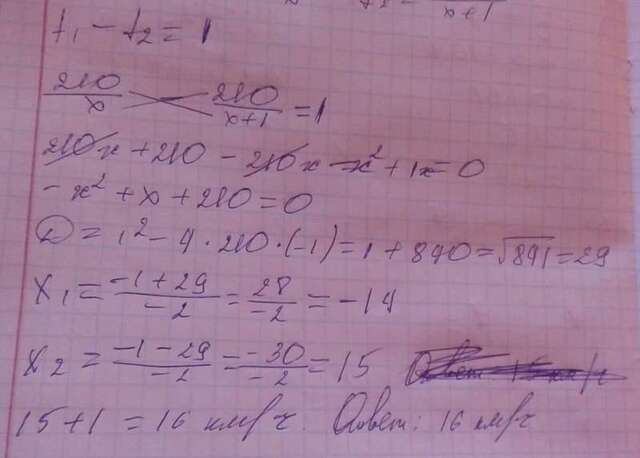 x+1
t₁ - t₂ = 1
210/x - 210/(x+1) = 1
210x + 210 - 210x - x² + 1x = 0
-x² + x + 210 = 0
D = 1² - 4 · 210 · (-1) = 1 + 840 = √841 = 29
x₁ = (-1 + 29)/(-2) = 28/(-2) = -14
x₂ = (-1 - 29)/(-2) = (-30)/(-2) = 15
15 + 1 = 16 км/ч. Ответ: 16 км/ч